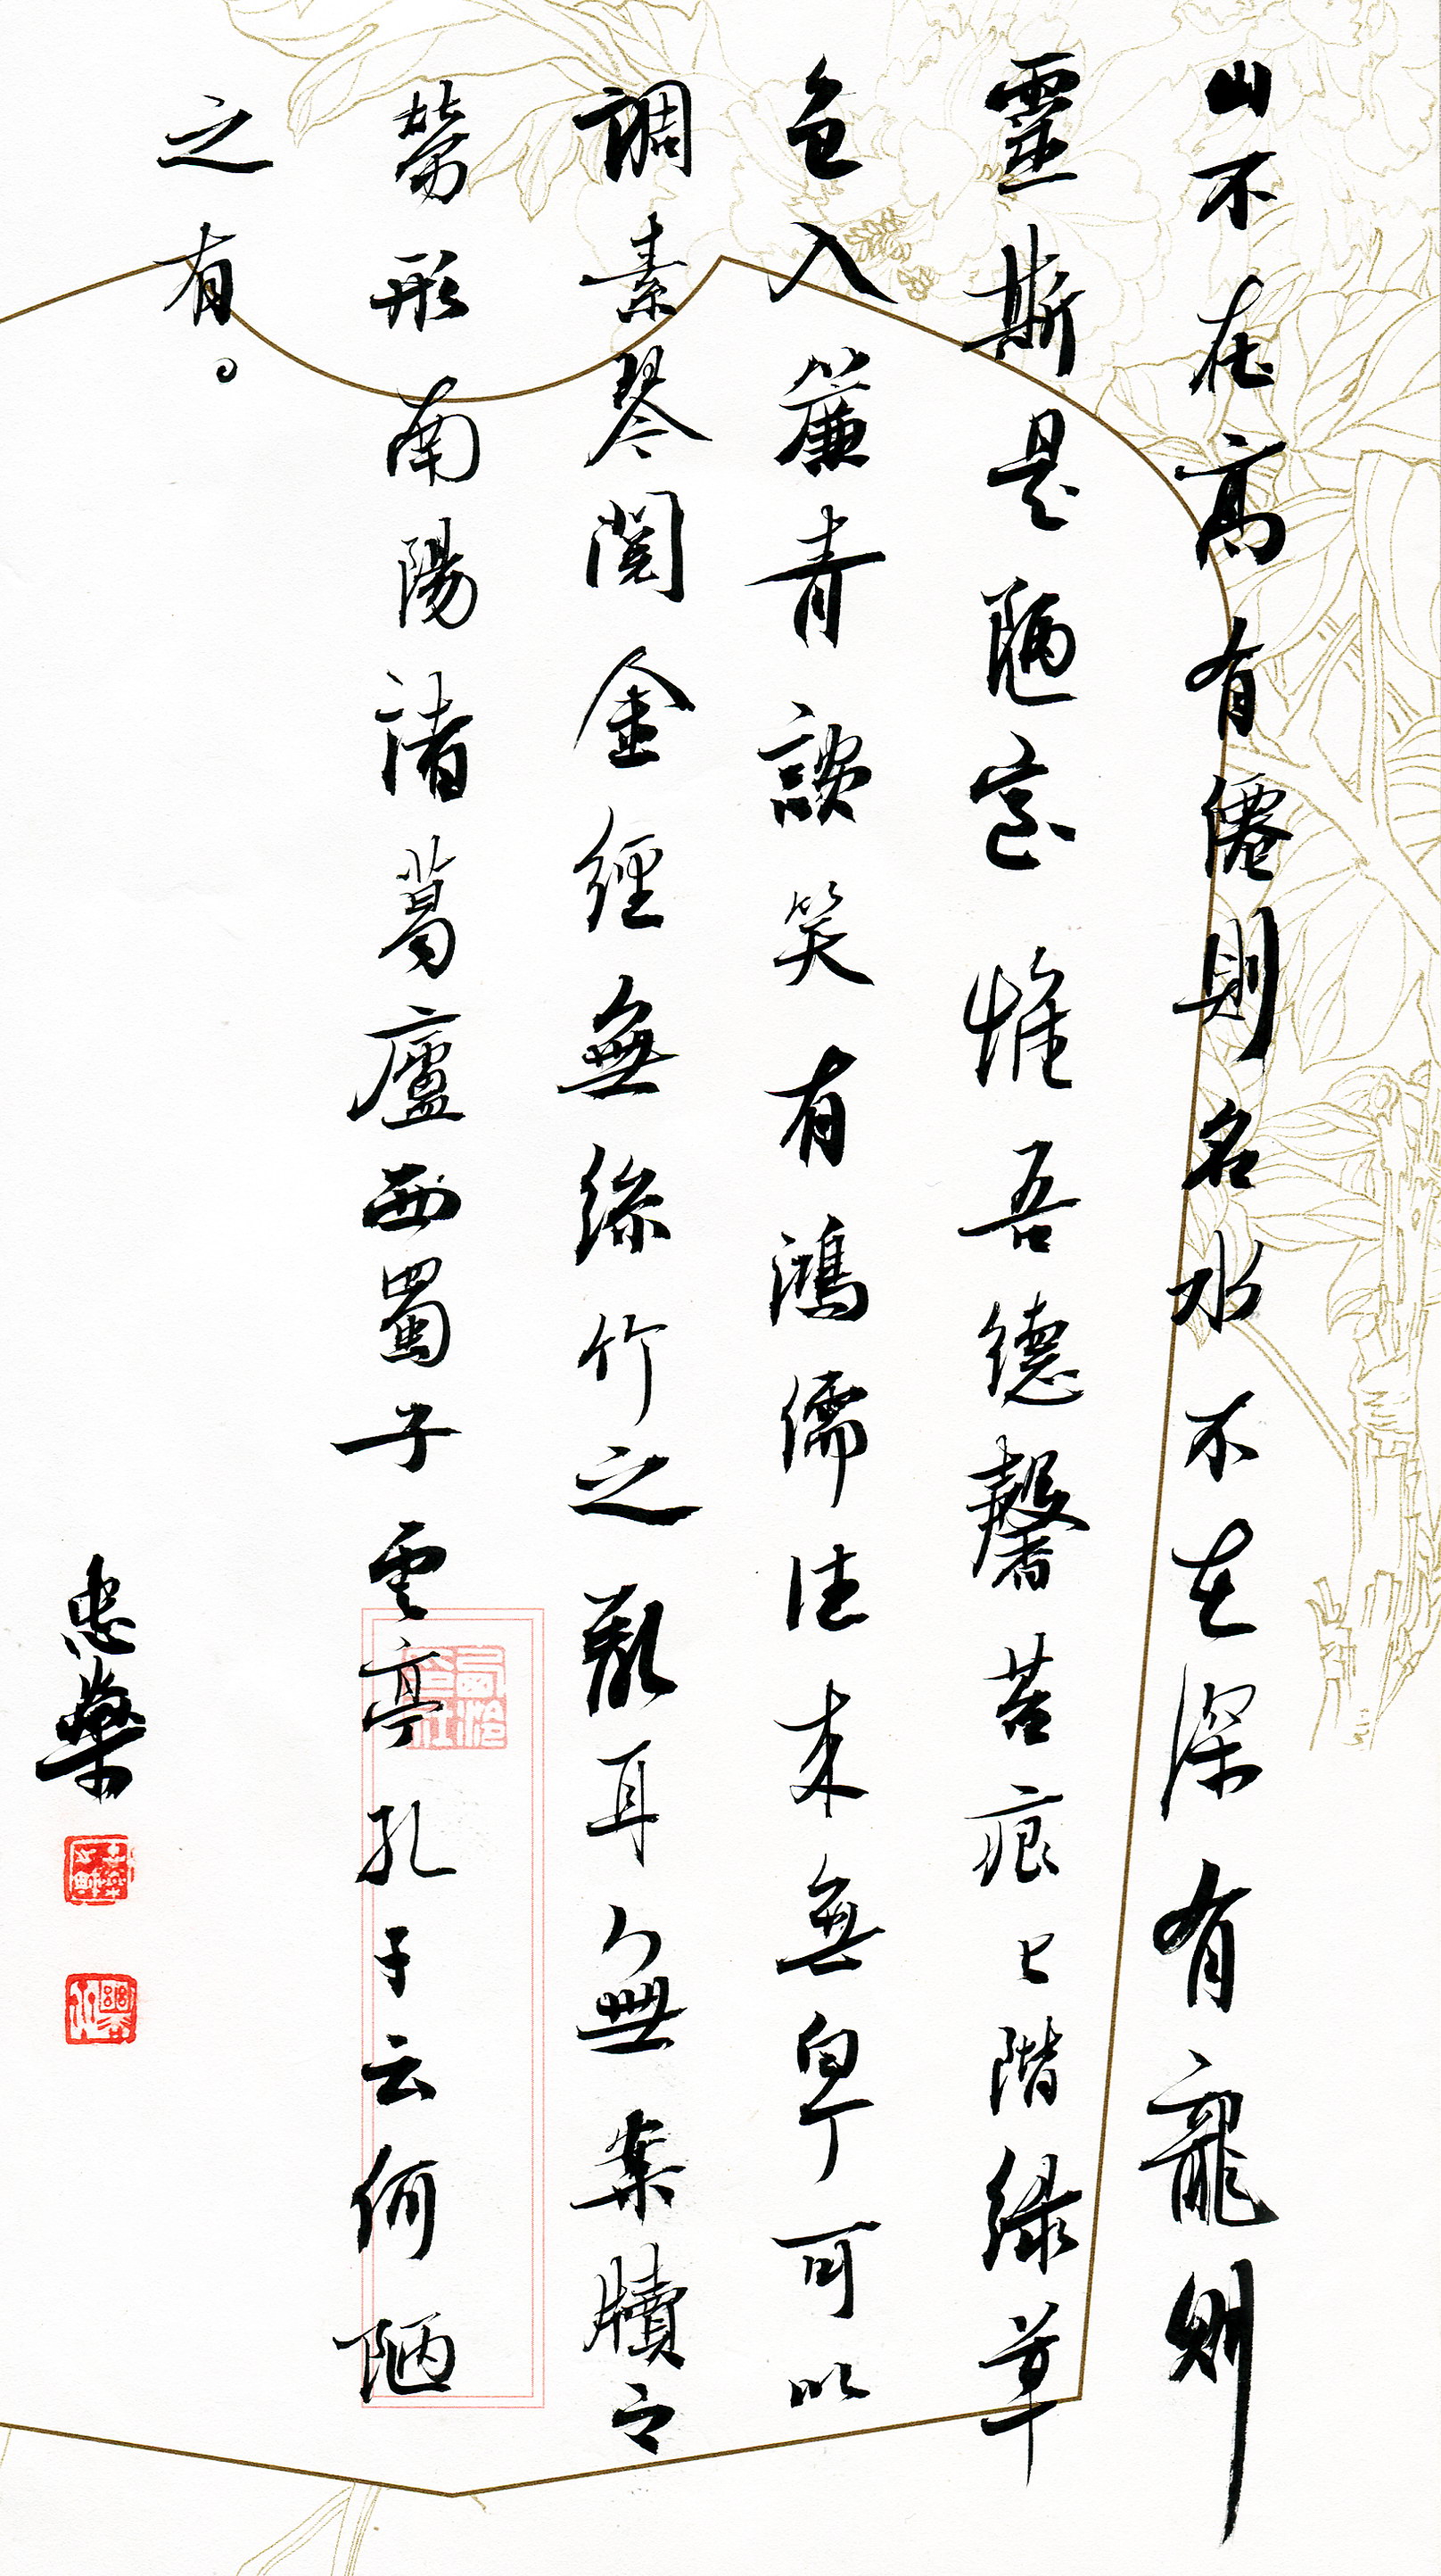 山不在高有僊則名水不在深有龍則
靈斯是陋室惟吾德馨苔痕上階緑草
色入簾青談笑有鴻儒往来無白丁可以
調素琴閱金經無絲竹之亂耳無案牘之
勞形南陽諸葛廬西蜀子雲亭孔子云何陋
之有。